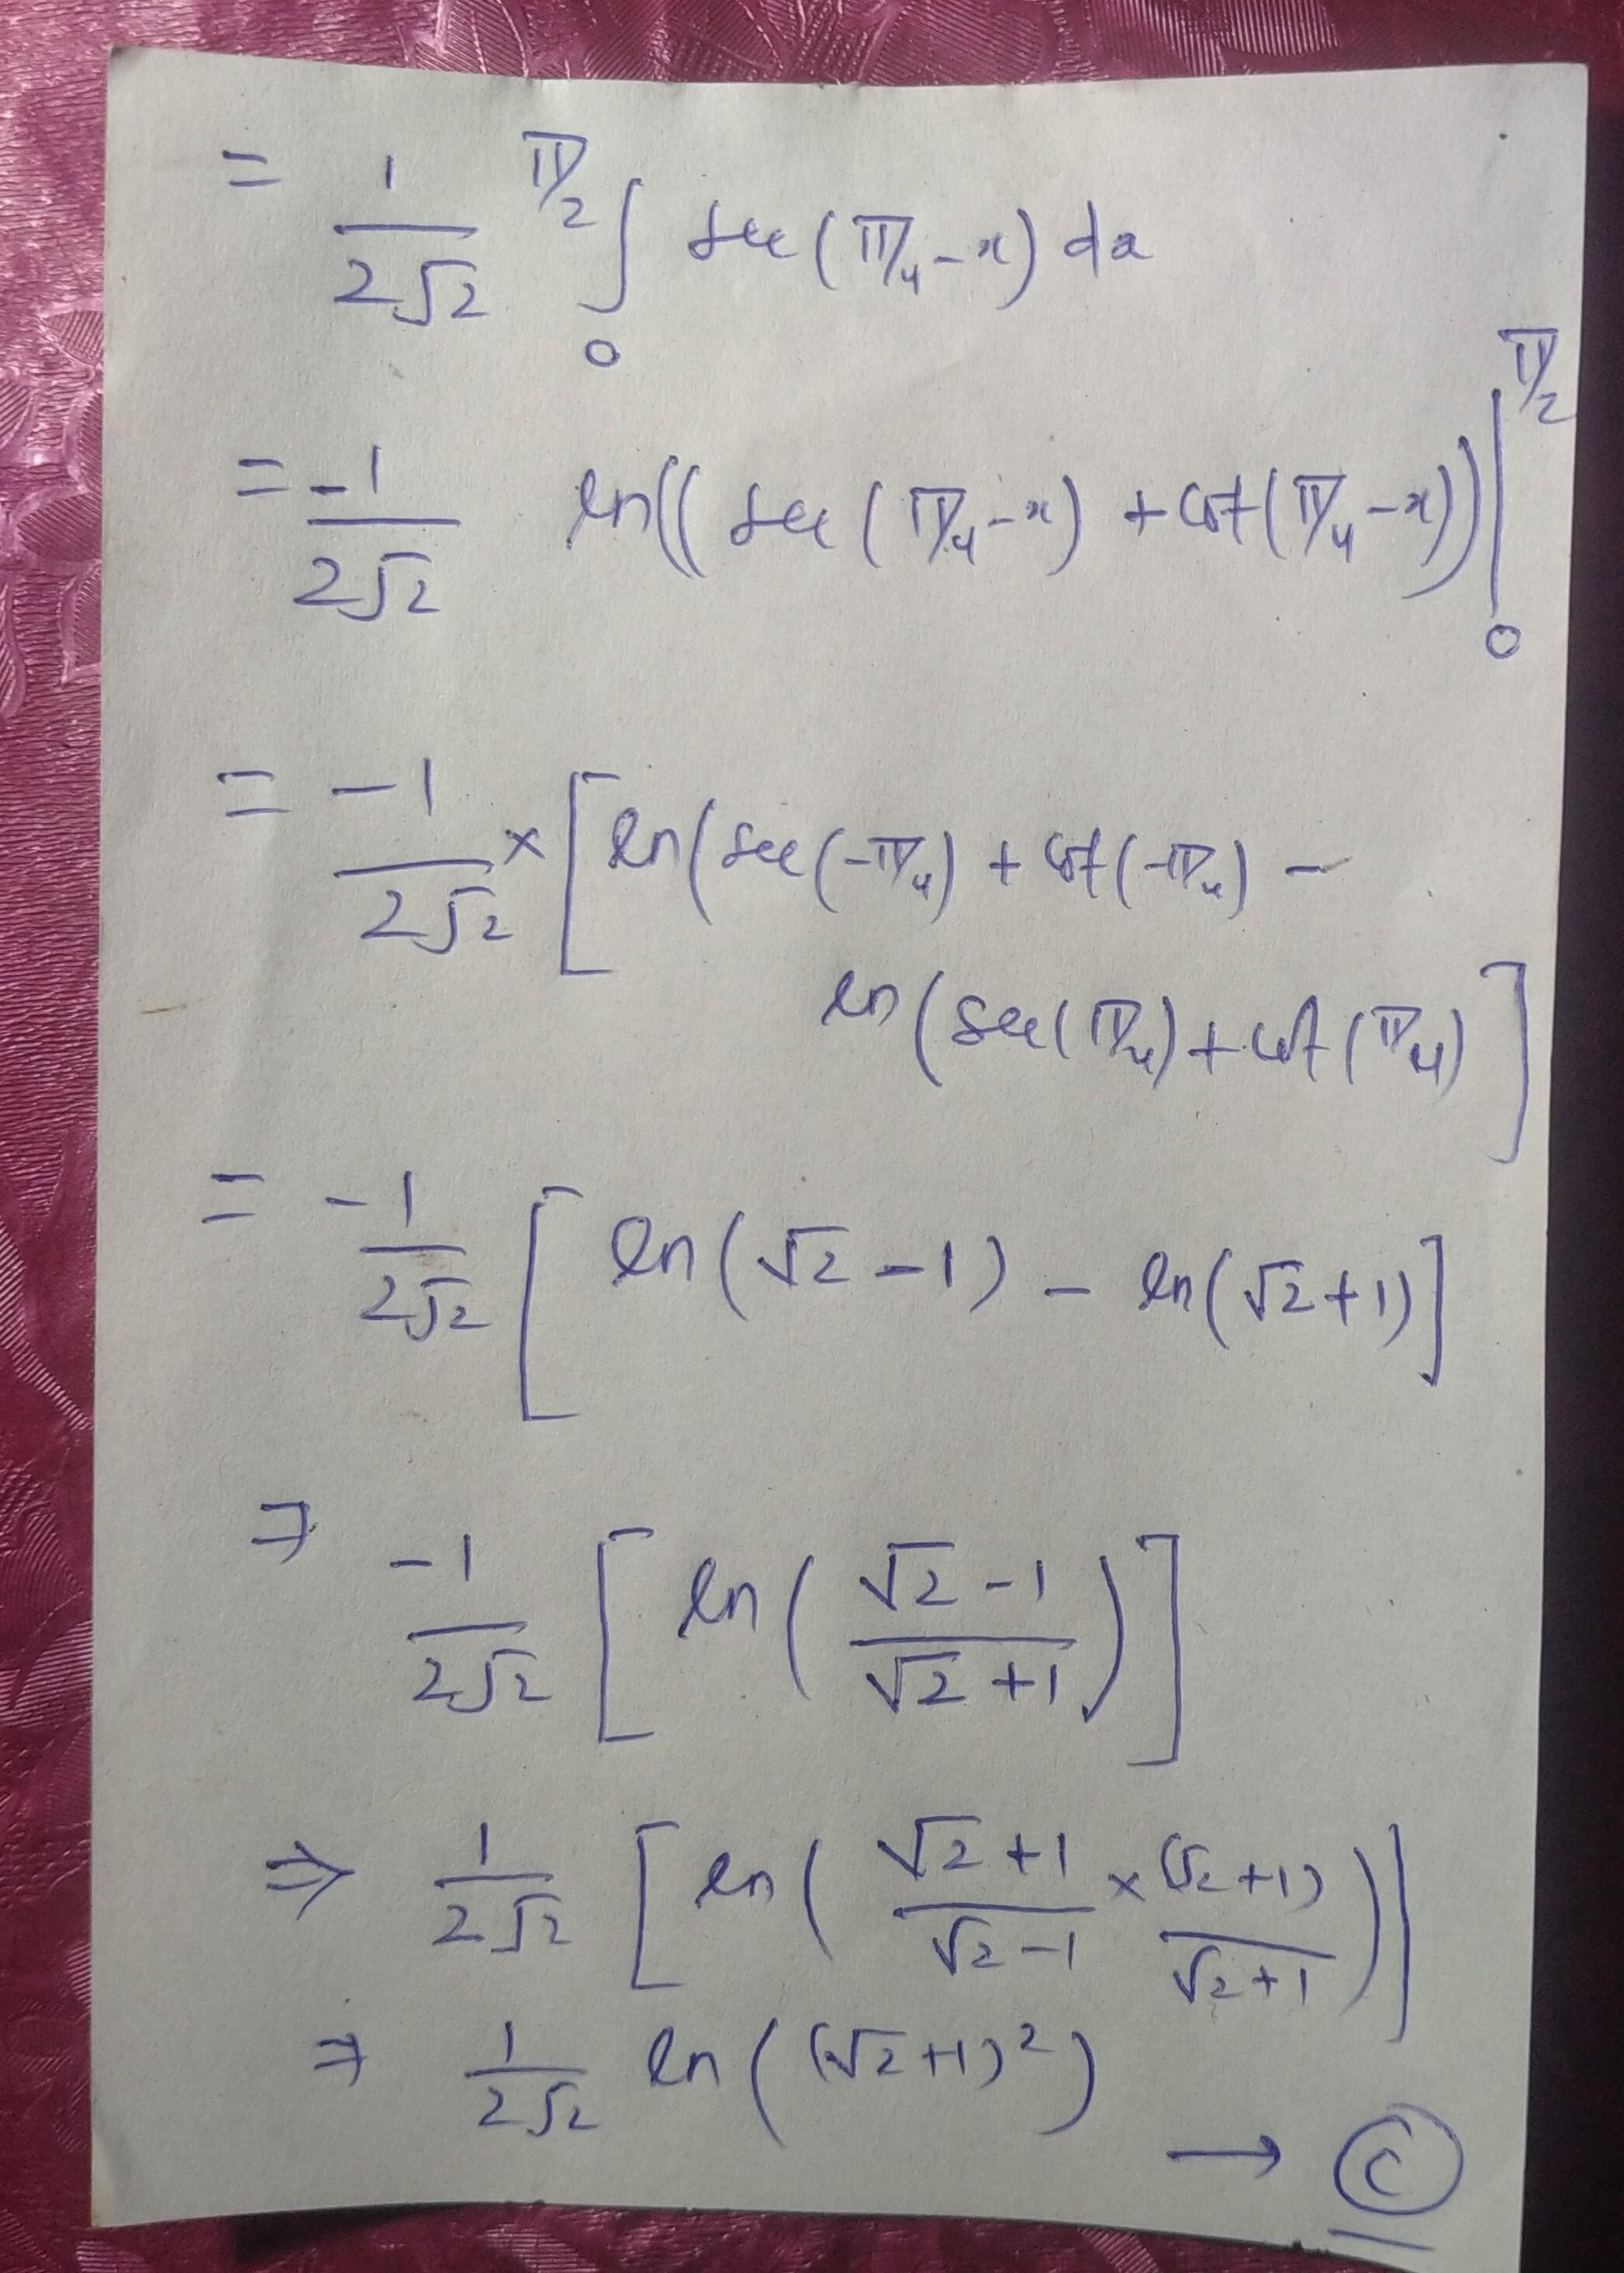 = 1/(2√2) ∫₀^(π/2) sec(π/4 - x) dx
= -1/(2√2) ln((sec(π/4 - x) + cot(π/4 - x))|₀^(π/2)
= -1/(2√2) × [ln(sec(-π/4) + cot(-π/4) -
ln(sec(π/4) + cot(π/4)]
= -1/(2√2) [ln(√2 - 1) - ln(√2 + 1)]
⇒ -1/(2√2) [ln((√2 - 1)/(√2 + 1))]
⇒ 1/(2√2) [ln((√2 + 1)/(√2 - 1) × (√2 + 1)/(√2 + 1))]
⇒ 1/(2√2) ln((√2 + 1)²)
→ C